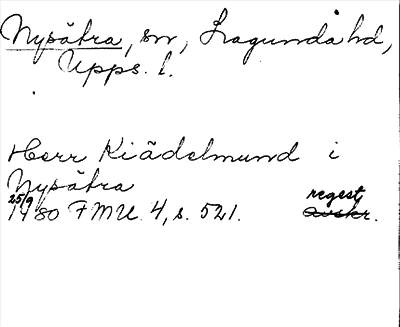 Nysätra, sn, Lagunda hd,
Upps. l.
Herr Kiädelmund i
Nysätra
25/9
1480 FMU. 4, s. 521. regest
avskr.